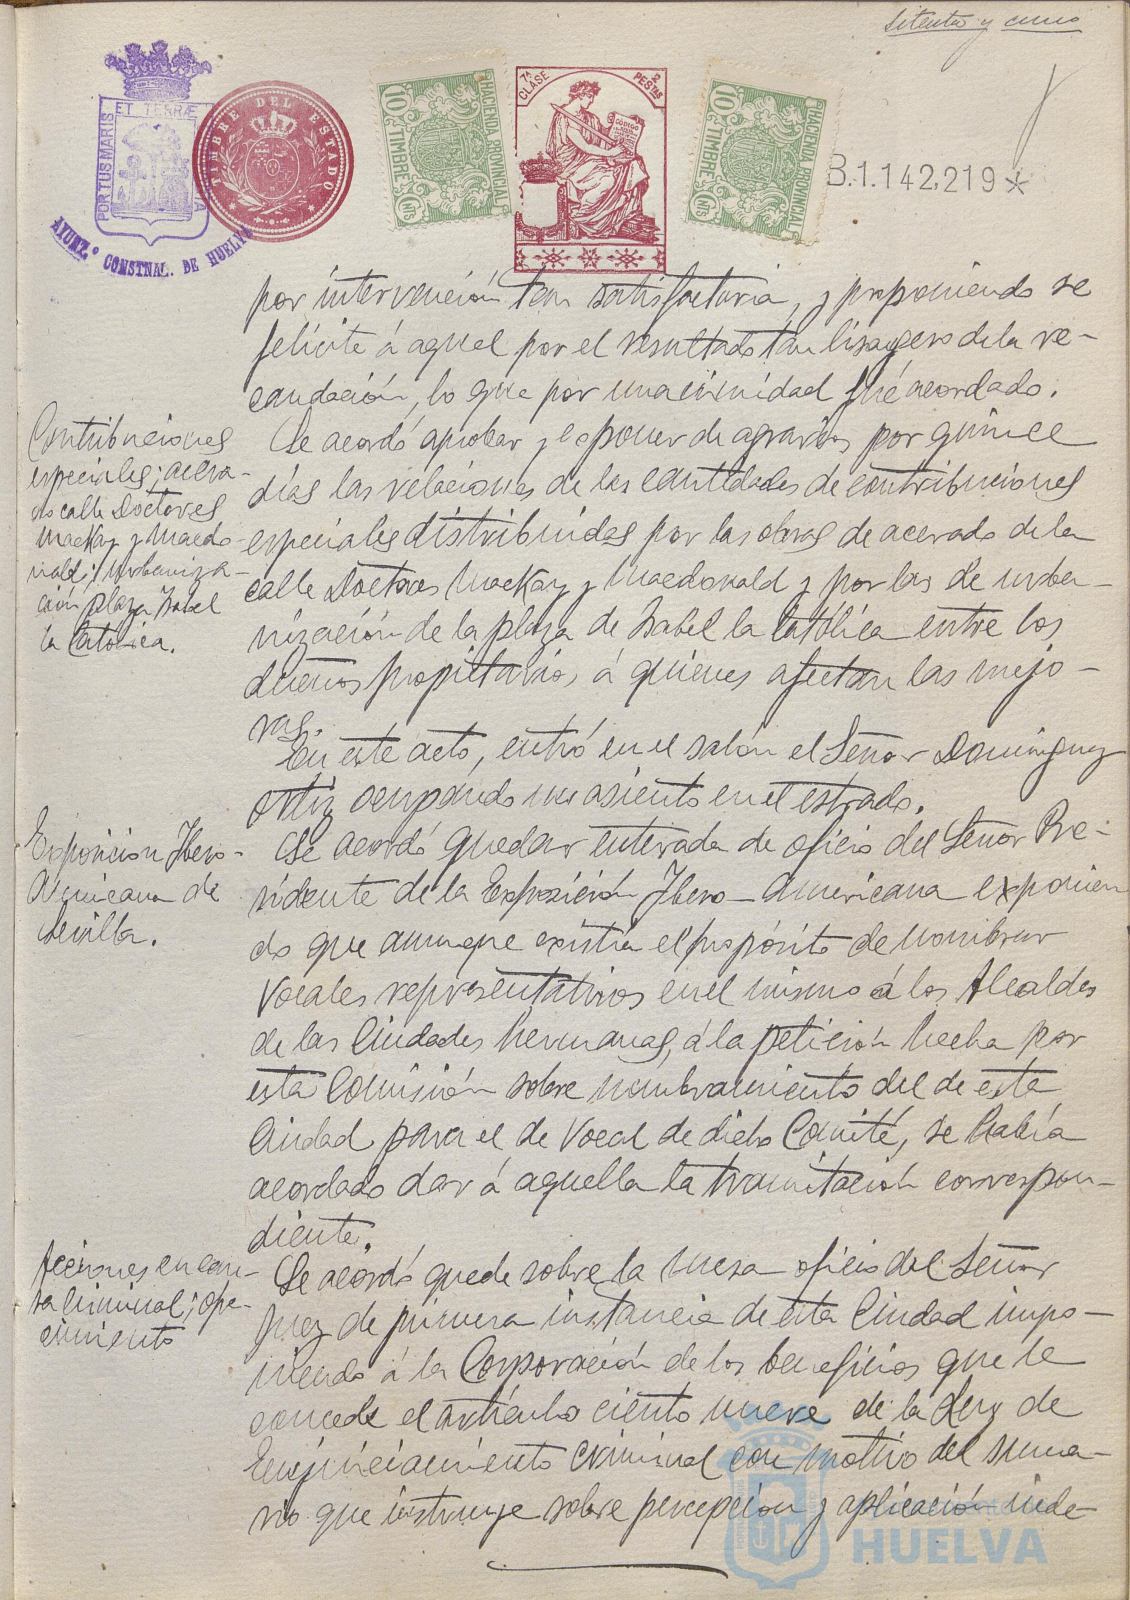 Setenta y cinco
PORTUS MARIS ET TERRÆ
AYUNT.º CONSTNAL. DE HUELVA
TIMBRE DEL ESTADO
HACIENDA PROVINCIAL
10 Cs TIMBRE 10 CNTS
7ª CLASE 2 PESTAS
CODIGO
HACIENDA PROVINCIAL
10 Cs TIMBRE 10 CNTS
B.1.142,219*
por intervención tan satisfactoria, y proponiendo se
felicite á aquel por el resultado tan lisongero de la re-
caudación, lo que por unanimidad fué acordado.
Contribuciones
especiales; acera-
do calle Doctores
Mackay y Macdo-
nald; urbaniza-
ción plaza Isabel
la Católica.
Se acordó aprobar y exponer de agravios por quince
días las relaciones de las cantidades de contribuciones
especiales distribuidas por las obras de acerado de la
calle Doctores Mackay y Macdonald y por las de urba-
nización de la plaza de Isabel la Católica entre los
dueños propietarios á quienes afectan las mejo-
ras.
En este acto, entró en el salón el Señor Dominguez
Ortiz ocupando un asiento en el estrado.
Exposicion Ibero-
Americana de
Sevilla.
Se acordó quedar enterada de oficio del Señor Pre-
sidente de la Exposición Ibero-Americana exponien
do que aunque existía el propósito de nombrar
Vocales representativos en el mismo á los Alcaldes
de las Ciudades hermanas, á la petición hecha por
esta Comisión sobre nombramiento del de esta
Ciudad para el de Vocal de dicho Comité, se había
acordado dar á aquella la tramitación correspon-
diente.
Acciones en cau-
sa criminal; ofre-
cimiento
Se acordó quede sobre la mesa oficio del Señor
Juez de primera instancia de esta Ciudad impo-
niendo á la Corporación de los beneficios que le
concede el artículo ciento nueve de la Ley de
Enjuiciamiento Criminal con motivo del suma-
rio que instruye sobre percepción y aplicación inde-
HUELVA